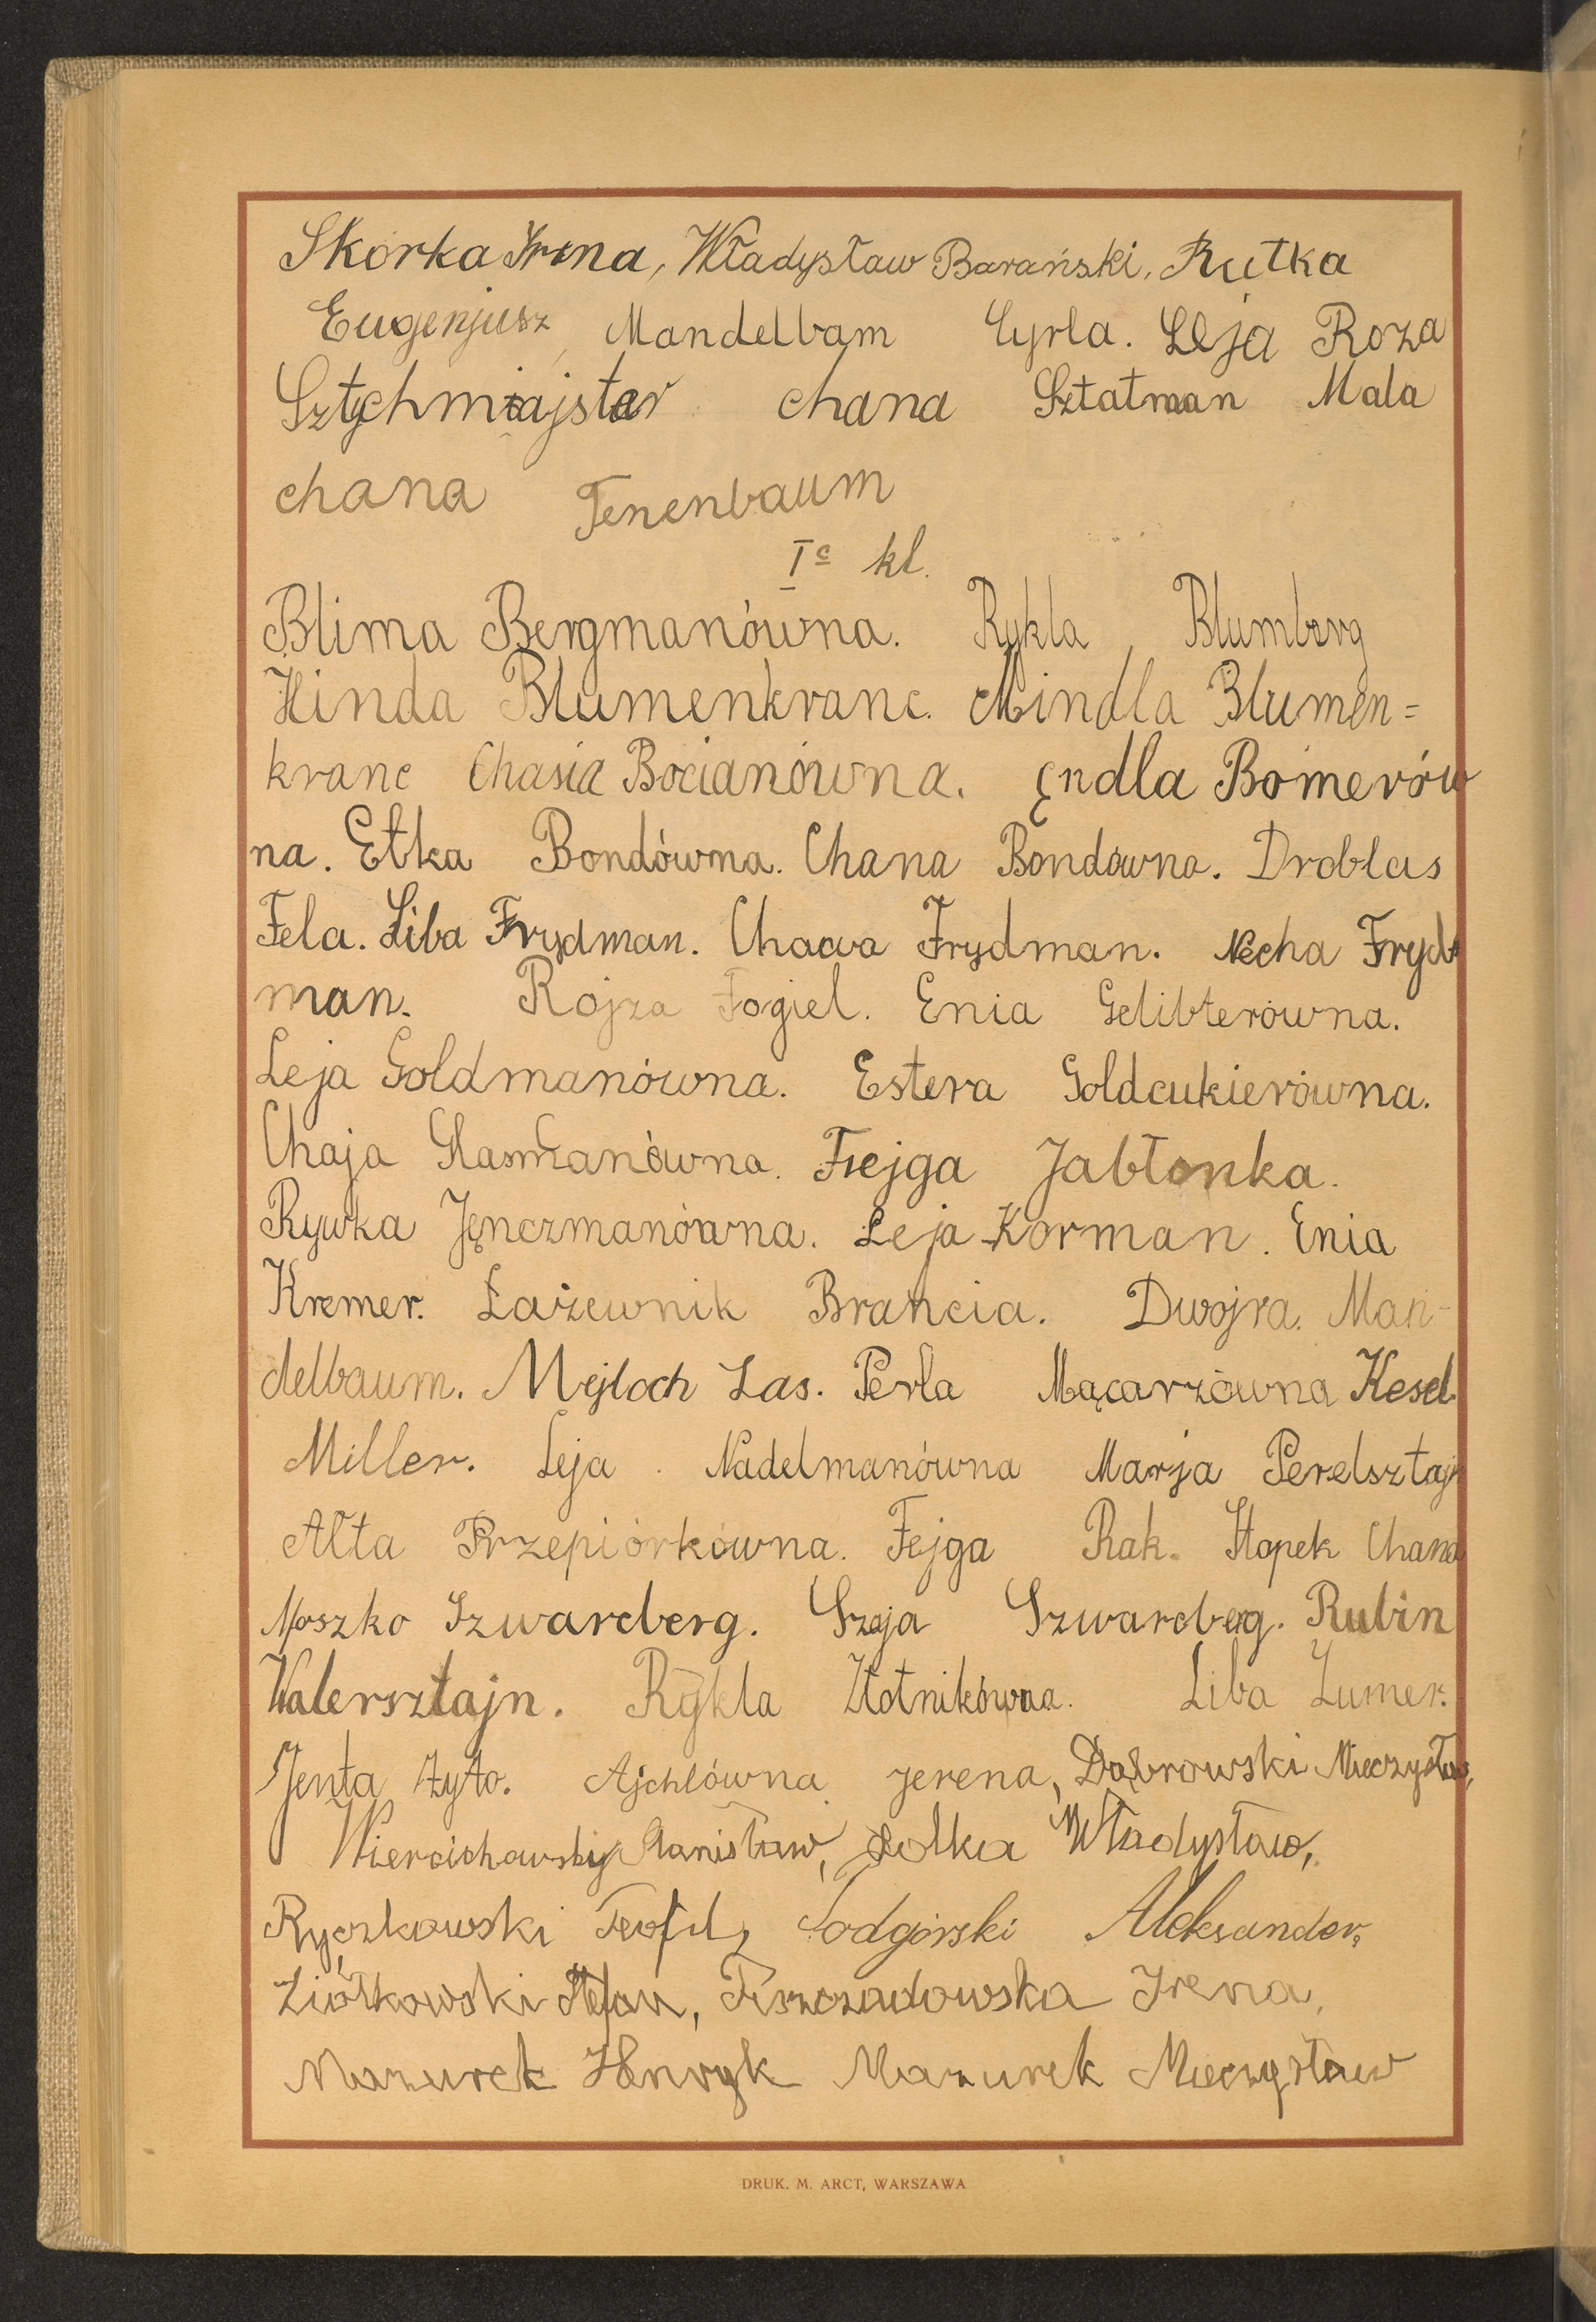 Skorka Irena, Władysław Barański, Rutka
Eugenjusz, Mandelbam Cyrla. Leja Roza
Sztychmiajster chana Sztatman Mala
chana Tenenbaum
I c kl.
Blima Bergmanówna. Rykla, Blumberg
Hinda Blumenkranc. Mindla Blumen=
kranc Chasia Bocianówna. Endla Bomerów
na. Etka Bondówna. Chana Bondówna. Droblas
Fela. Liba Frydman. Chawa Frydman. Necha Fryd
man. Rojza Fogiel. Enia Gelibterówna.
Leja Goldmanówna. Estera Goldcukierówna.
Chaja Glasmanówna. Fejga Jabłonka.
Rywka Jęnczmanówna. Leja Korman. Enia
Kremer. Łażewnik Brancia. Dwojra. Man-
delbaum. Mejloch Las. Perla Mącarzówna Kesel
Miller. Leja Nadelmanówna Marja Perelsztajn
Ałta Przepiórkówna. Fejga Rak. Stopek Chana
Moszko Szwarcberg. Szaja Szwarcberg. Rubin
Walersztajn. Rykla Złotnikówna. Liba Zumer.
Jenta Żyto. Ajchlówna Jerena, Dąbrowski Mieczysław,
Wiercichowski Stanisław, Władysław,
Ryczkowski Teofil, Podgórski Aleksander,
Ziółkowski Stefan, Irena,
Mazurek Henryk Mazurek Mieczysław
DRUK. M. ARCT, WARSZAWA